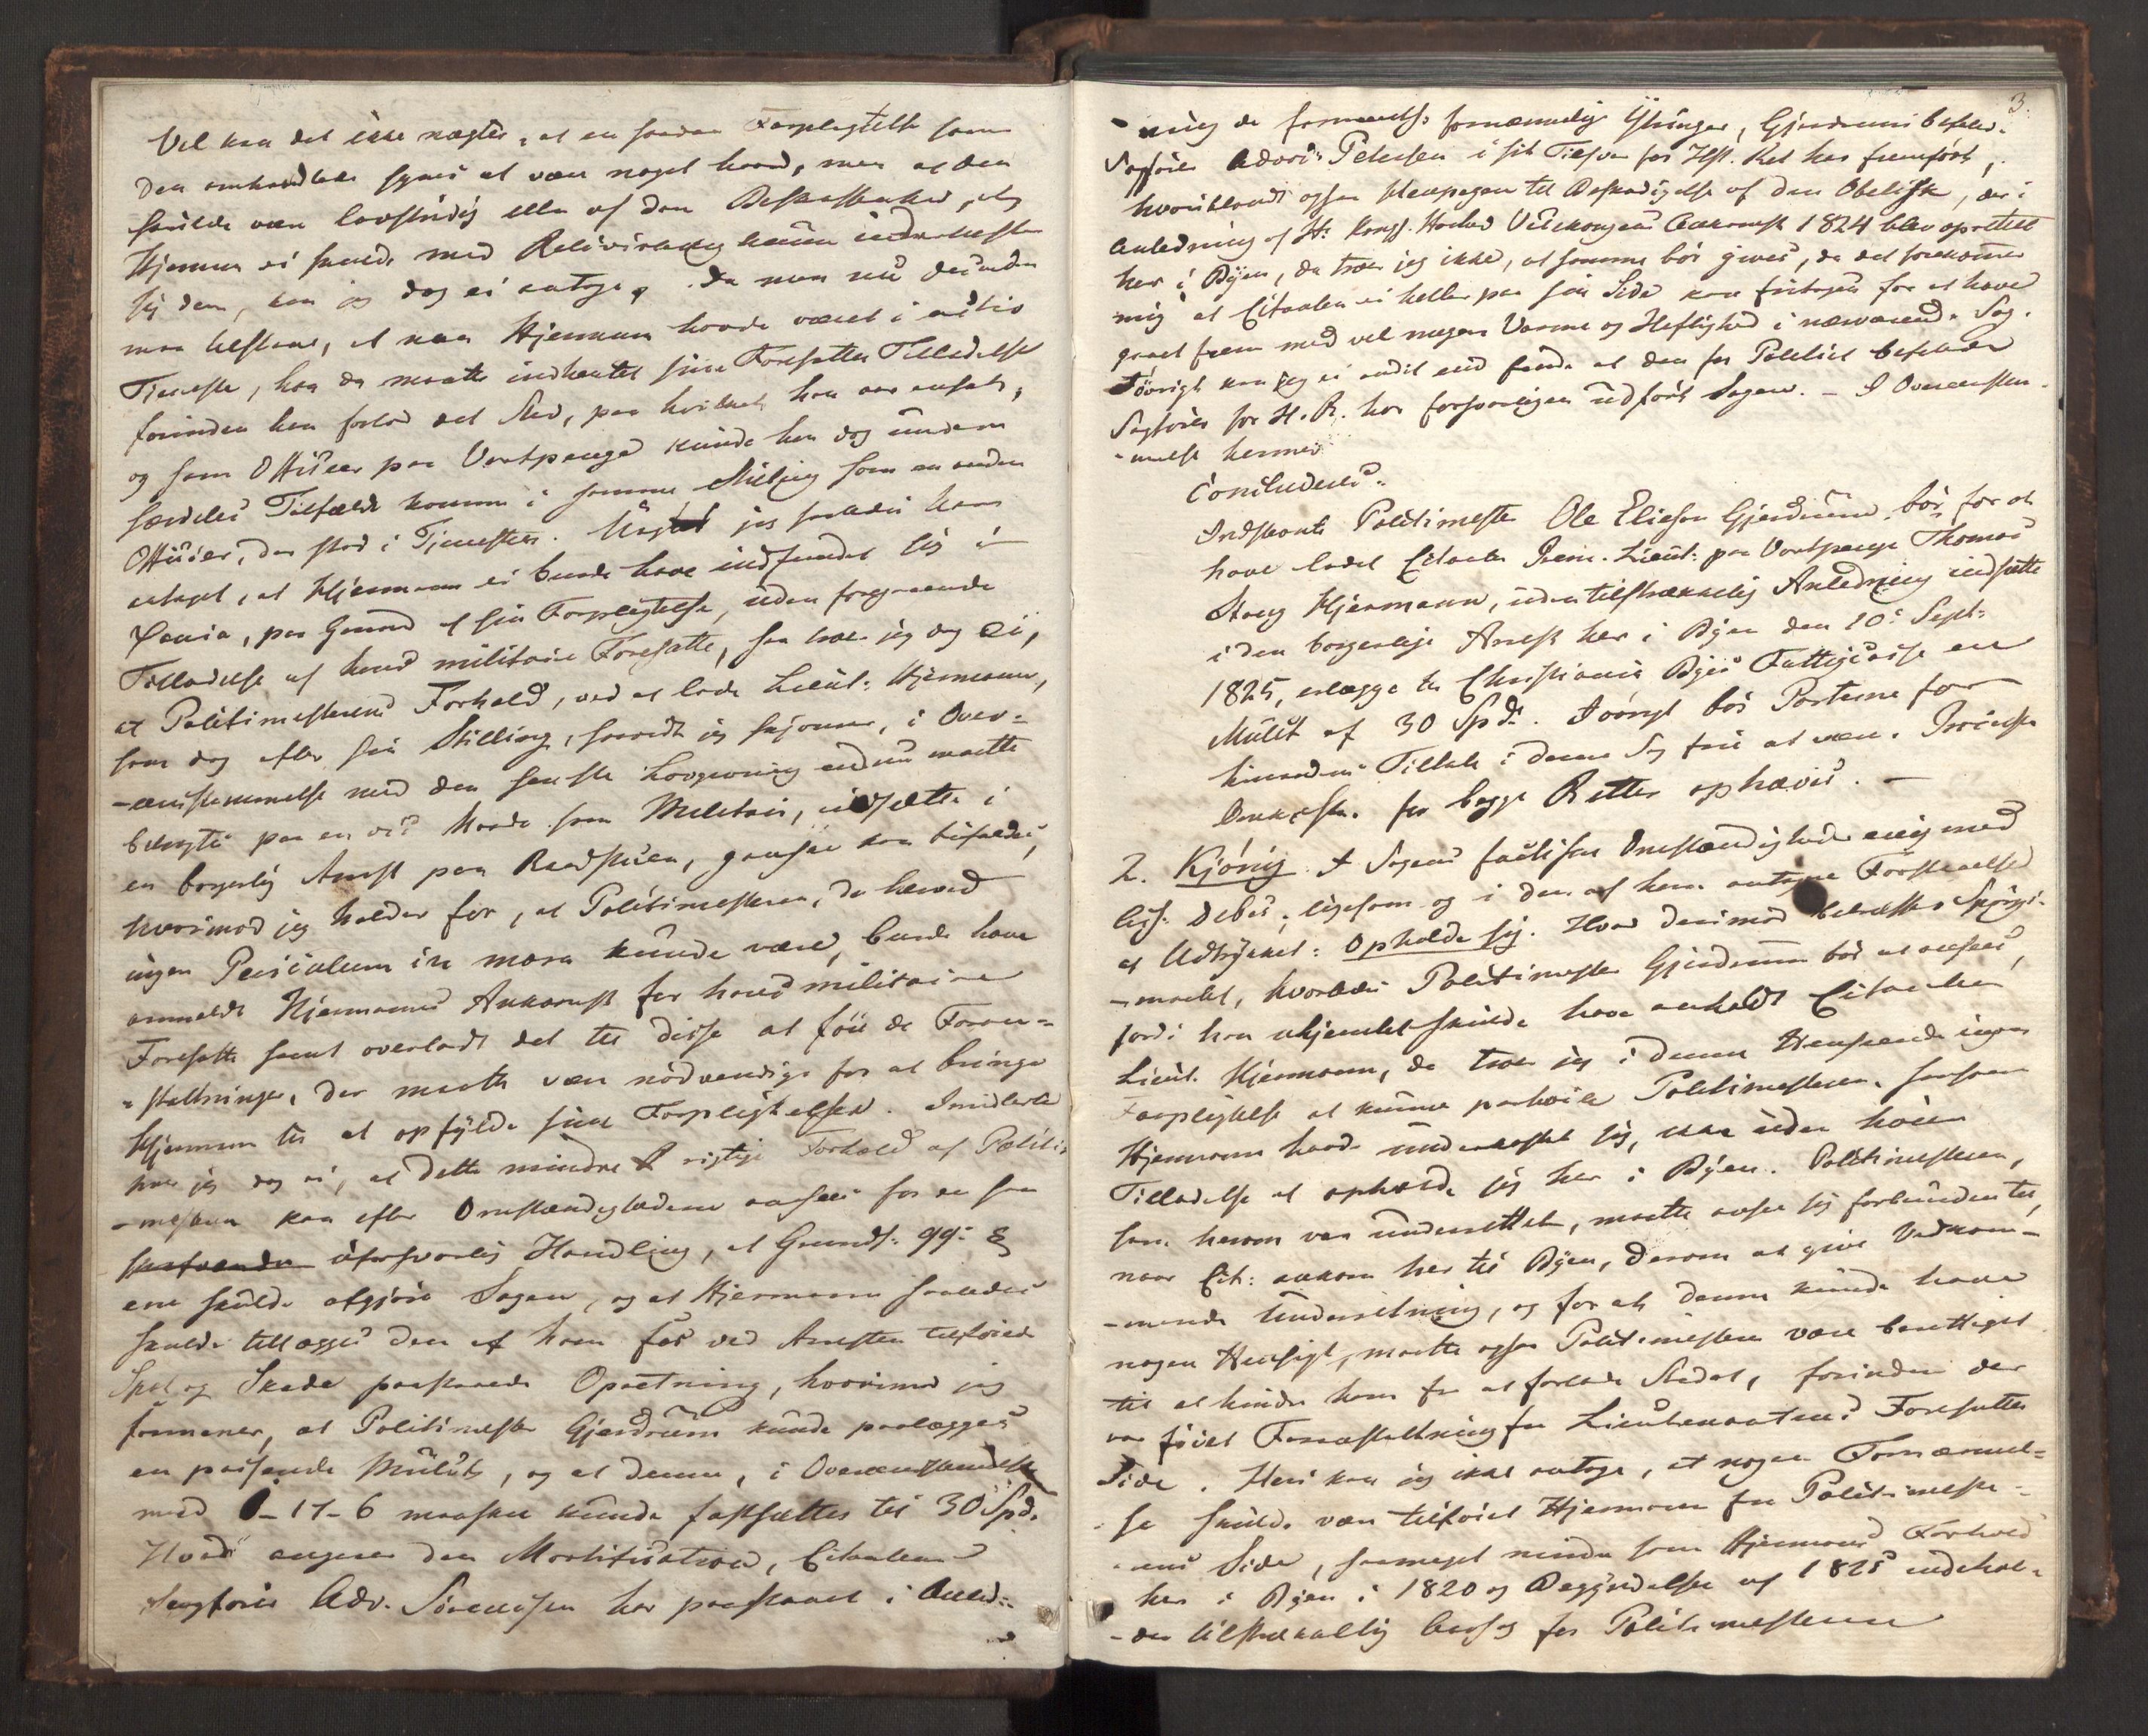 Vel kan det ikke nægtes, at en saadan Forpligtelse som
den omhandlede synes at være noget haard, men at den
skulde være lovstridig eller af den Beskaffenhed, at
Hjermann ei skulde med Retsvirkning kunne underkaste
sig den, kan jeg dog ei antage. Da man nu desuden
maa tilstaae, at naar Hjermann havde været i activ
Tieneste, han da maatte indhentet sine Foresattes Tilladelse
forinden han forlod det Sted, paa hvilket han var ansat,
og som Officier paa Vartpenge kunde han dog under
særdeles Tilfælde komme i samme Stilling som en anden
Officier, der stod i Tjenesten. Uagtet jeg saaledes har
antaget, at Hjermann ei burde have indfundet sig i
Xania, paa Grund af sin Forpligtelse, uden foregaaende
Tilladelse af hans militaire Foresatte, saa troer jeg dog ei,
at Politimesterens Forhold, ved at lade Lieut: Hjermann,
som dog efter sin Stilling, saavidt jeg skjønner, i Over-
-eensstemmelse med den seneste Lovgivning endnu maatte
betragtes paa en vis Maade som Militair, indsætte i
en borgerlig Arrest paa Raadstuen, ganske kan bifaldes,
hvorimod jeg holder for, at Politimesteren, da herved
ingen Periculum in mora kunde være, burde have
anmeldt Hjermanns Ankomst for hans militaire
Foresatte samt overladt det til disse at föie de Foran-
-staltninger, der maatte være nödvendige for at bringe
Hjermann til at opfylde sine Forpligtelser. Imidlertid
troer jeg dog ei, at dette mindre rigtige Forhold af Politi-
-mesteren kan efter Omstændighederne ansees for en saa
uforsvarlig Handling, at Grundl: 99: §
ene skulde afgjöre Sagen, og at Hjermann saaledes
skulde tillægges den af ham for ved Arresten tilföiede
Spot og Skade paastaaede Opretning, hvorimod jeg
formener, at Politimester Gjerdrum kunde paalægges
en passende Mulct, og at denne, i Overeensstemmelse
med 6-17-6 maaskee kunde fastsættes til 30 Spd.
Hvad angaaer den Mortification, Citantens
Sagförer Adv. Sörensen har paastaaet i Anled-
3.
-ning de formeentl. fornærmelige Ytringer, Gjerdrums befalede
Sagförer Advoc: Petersen i sit Tilsvar for Höst. Ret har fremfört,
hvoriblandt ogsaa Stenpegen til Beskadigelse af den Obelisk, der i
Anledning af H: Kongl. Höihed Vicekongens Ankomst 1824 blev oprettet
her i Byen, da troer jeg ikke, at samme bör gives, da det forekommer
mig at Citanten ei heller paa sin Side kan fritages for at have
gaaet frem med vel megen Varme og Heftighed i nærværende Sag.
Iövrigt kan jeg ei andet end finde at den for Politiet befalede
Sagförer for H. R. har forsvarligen udfört Sagen. – I Overeensstem-
-melse hermed
Concluderes:
Indstævnte Politimester Ole Eliesen Gjerdrum bör for at
have ladet Citanten Prem. Lieut: paa Vartpenge Thomas
Stang Hjermann, uden tilstrækkelig Anledning indsætte
i den borgerlige Arrest her i Byen den 10: Sept:
1825, erlægge til Christiania Byes Fattigcasse en
Mulct af 30 Spd. Iövrigt bör Parterne for
hinandens Tiltale i denne Sag frie at være. Processens
Omkostn. for begge Retter ophæves. –
2. Kjönig. I Sagens factiske Omstændigheder enig med
Ass: Debes, ligesom og i den af ham antagne Forstaaelse
af Udtrykket: Opholde sig. Hvad derimod betræffer Spörgs-
-maalet, hvorledes Politimester Gjerdrum bör at ansees,
fordi han uhjemlet skulde have anholdt Citanten
Lieut. Hjermann, da troer jeg i denne Henseende ingen
Forpligtelse at kunne paahvile Politimesteren. Saasom
Hjermann havde underkastet sig, ikke uden höiere
Tilladelse at opholde sig her i Byen. Politimesteren,
som herom var underrettet, maatte ansee sig forbunden til,
naar Cit: ankom her til Byen, derom at give Vedkom-
-mende Underretning, og for at denne kunde have
nogen Hensigt, maatte ogsaa Politimesteren være berettiget
til at hindre ham fra at forlade Stedet, forinden der
var föiet Foranstaltning fra Lieutenantens Foresattes
Side. Heri kan jeg ikke antage, at nogen Fornærmel-
-se skulde være tilföiet Hjermann fra Politimeste-
-rens Side, saameget mindre som Hjermanns Forhold
her i Byen i 1820 og Begyndelsen af 1825 indehol-
-der tilstrækkelig Aarsag for Politimesteren